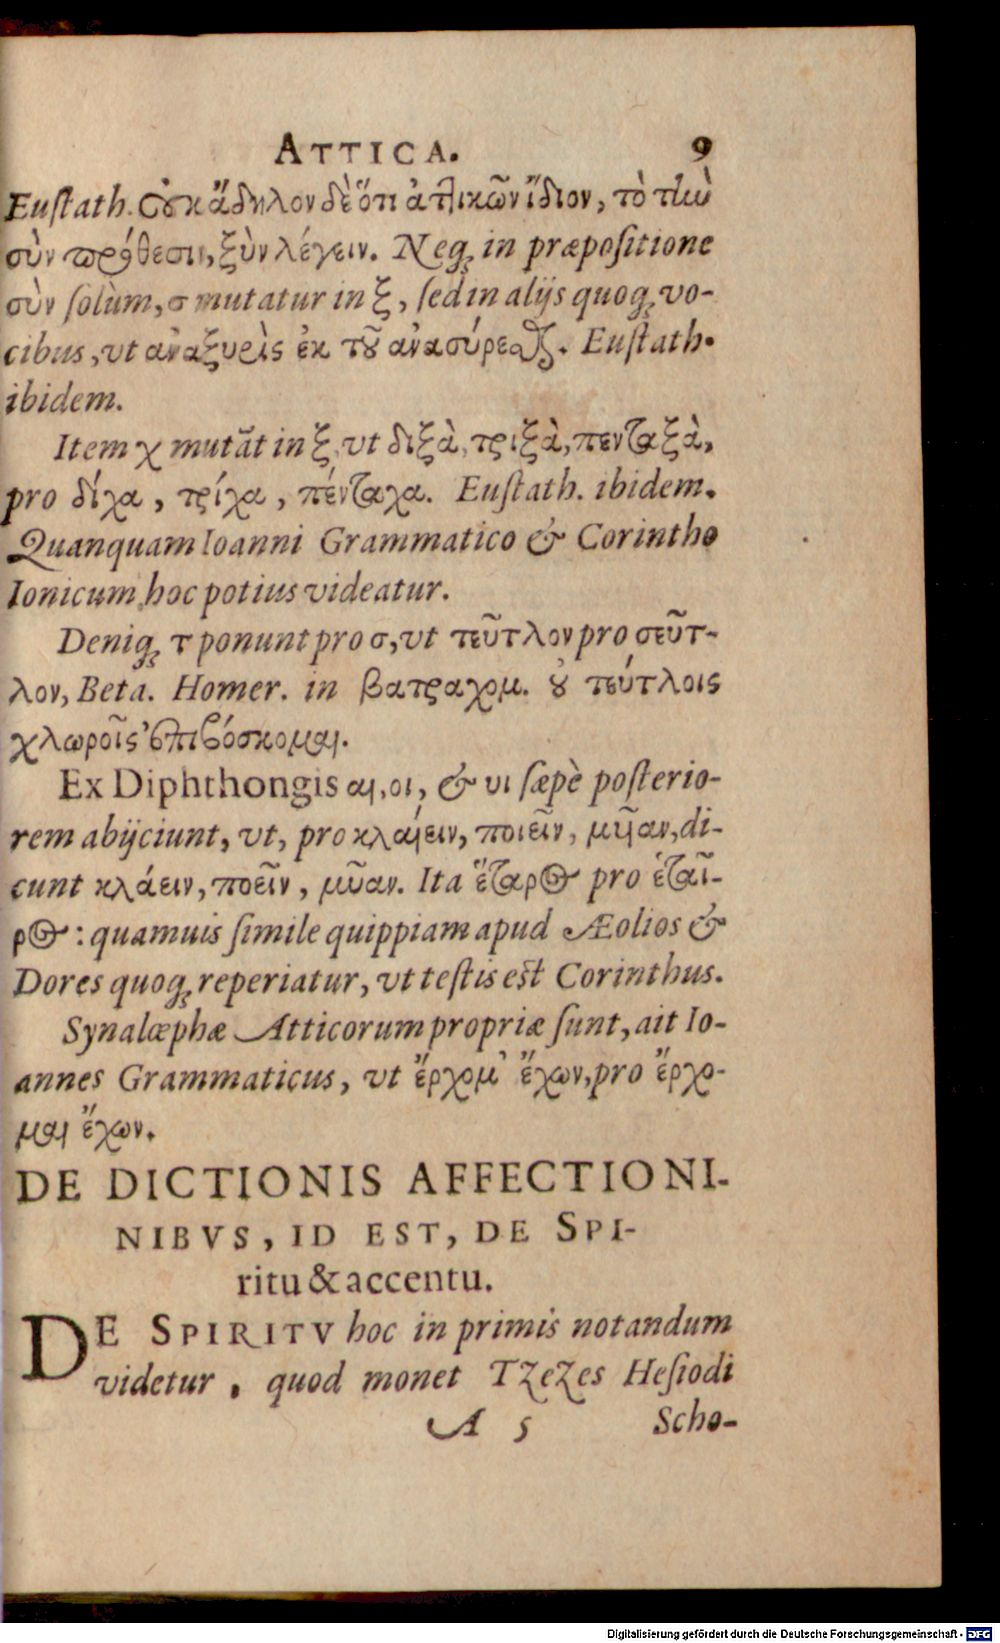 ATTICA. 9
Eustath. Οὐκ ἄδηλον δὲ ὅτι ἀττικῶν ἴδιον, τὸ τὴν
σὺν πρόθεσιν, ξὺν λέγειν. Neq; in præpositione
σὺν solùm, σ mutatur in ξ, sed in alijs quoq; vo-
cibus, vt ἀναξυρὶς ἐκ τοῦ ἀνασύρεσθαι. Eustath.
ibidem.
Item χ mutãt in ξ, vt διξὰ, τριξὰ, πενταξὰ,
pro δίχα, τρίχα, πένταχα. Eustath. ibidem.
Quanquam Ioanni Grammatico & Corintho
Ionicum hoc potius videatur.
Deniq; τ ponunt pro σ, vt τεῦτλον pro σεῦτ-
λον, Beta. Homer. in βατραχομ. οὐ τεύτλοις
χλωροῖς ἐπιβόσκομαι.
Ex Diphthongis αι, οι, & υι sæpè posterio-
rem abijciunt, vt, pro κλαίειν, ποιεῖν, μυῖαν, di-
cunt κλάειν, ποεῖν, μῦαν. Ita ἕταρος pro ἑταῖ-
ρος: quamuis simile quippiam apud Æolios &
Dores quoq; reperiatur, vt testis est Corinthus.
Synalœphæ Atticorum propriæ sunt, ait Io-
annes Grammaticus, vt ἔρχομ' ἔχων, pro ἔρχο-
μαι ἔχων.
DE DICTIONIS AFFECTIONI-
NIBVS, ID EST, DE SPI-
ritu & accentu.
DE SPIRITV hoc in primis notandum
videtur, quod monet Tzezes Hesiodi
A 5 Scho-
Digitalisierung gefördert durch die Deutsche Forschungsgemeinschaft - DFG